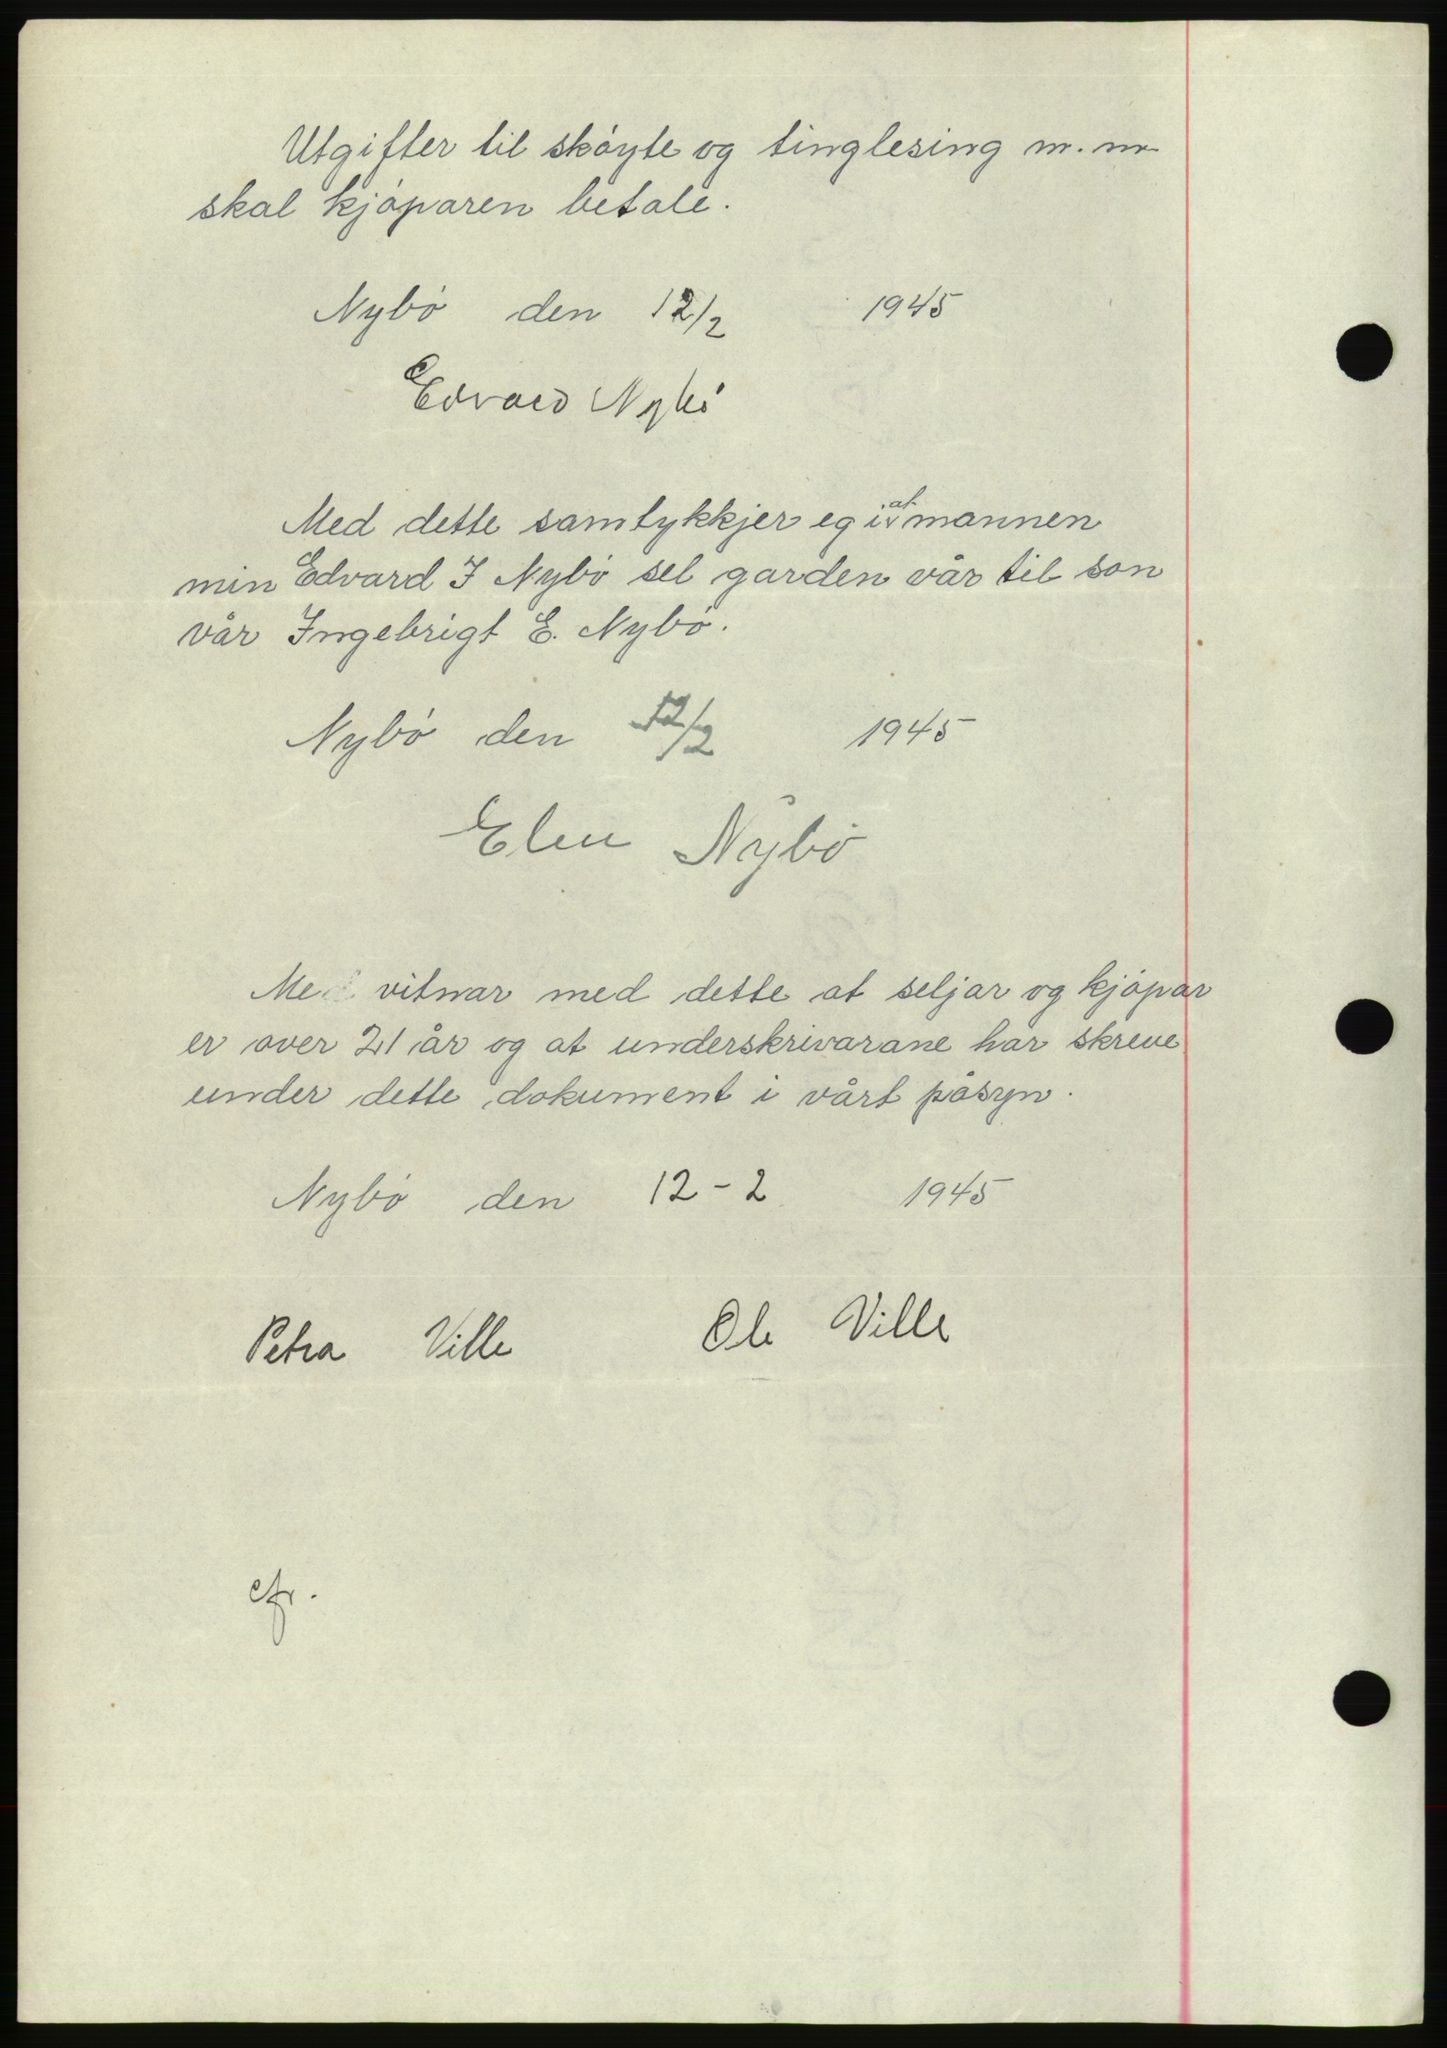 Utgifter til skøyte og tinglesing m. m
skal kjøparen betale.
Nybø den 12/2 1945
Edvard Nybø
Med dette samtykkjer eg i at mannen
min Edvard I Nybø sel garden vår til son
vår Ingebrigt E. Nybø.
Nybø den 12/2 1945
Elen Nybø
Med vitnar med dette at seljar og kjøpar
er over 21 år og at underskrivarane har skreve
under dette dokument i vårt påsyn.
Nybø den 12-2 1945
Petra Ville Ole Ville
cfr.